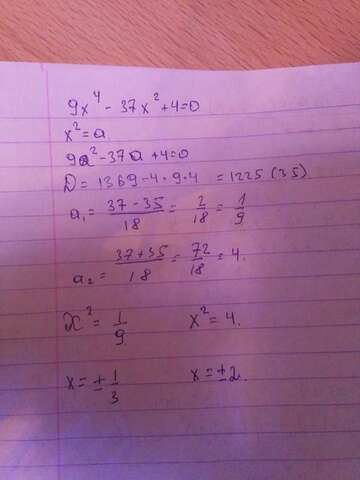 9x⁴ - 37x² + 4 = 0
x² = a
9a² - 37a + 4 = 0
D = 1369 - 4 · 9 · 4 = 1225 (35)
a₁ = (37 - 35)/18 = 2/18 = 1/9
a₂ = (37 + 35)/18 = 72/18 = 4.
x² = 1/9 x² = 4.
x = ± 1/3 x = ± 2.